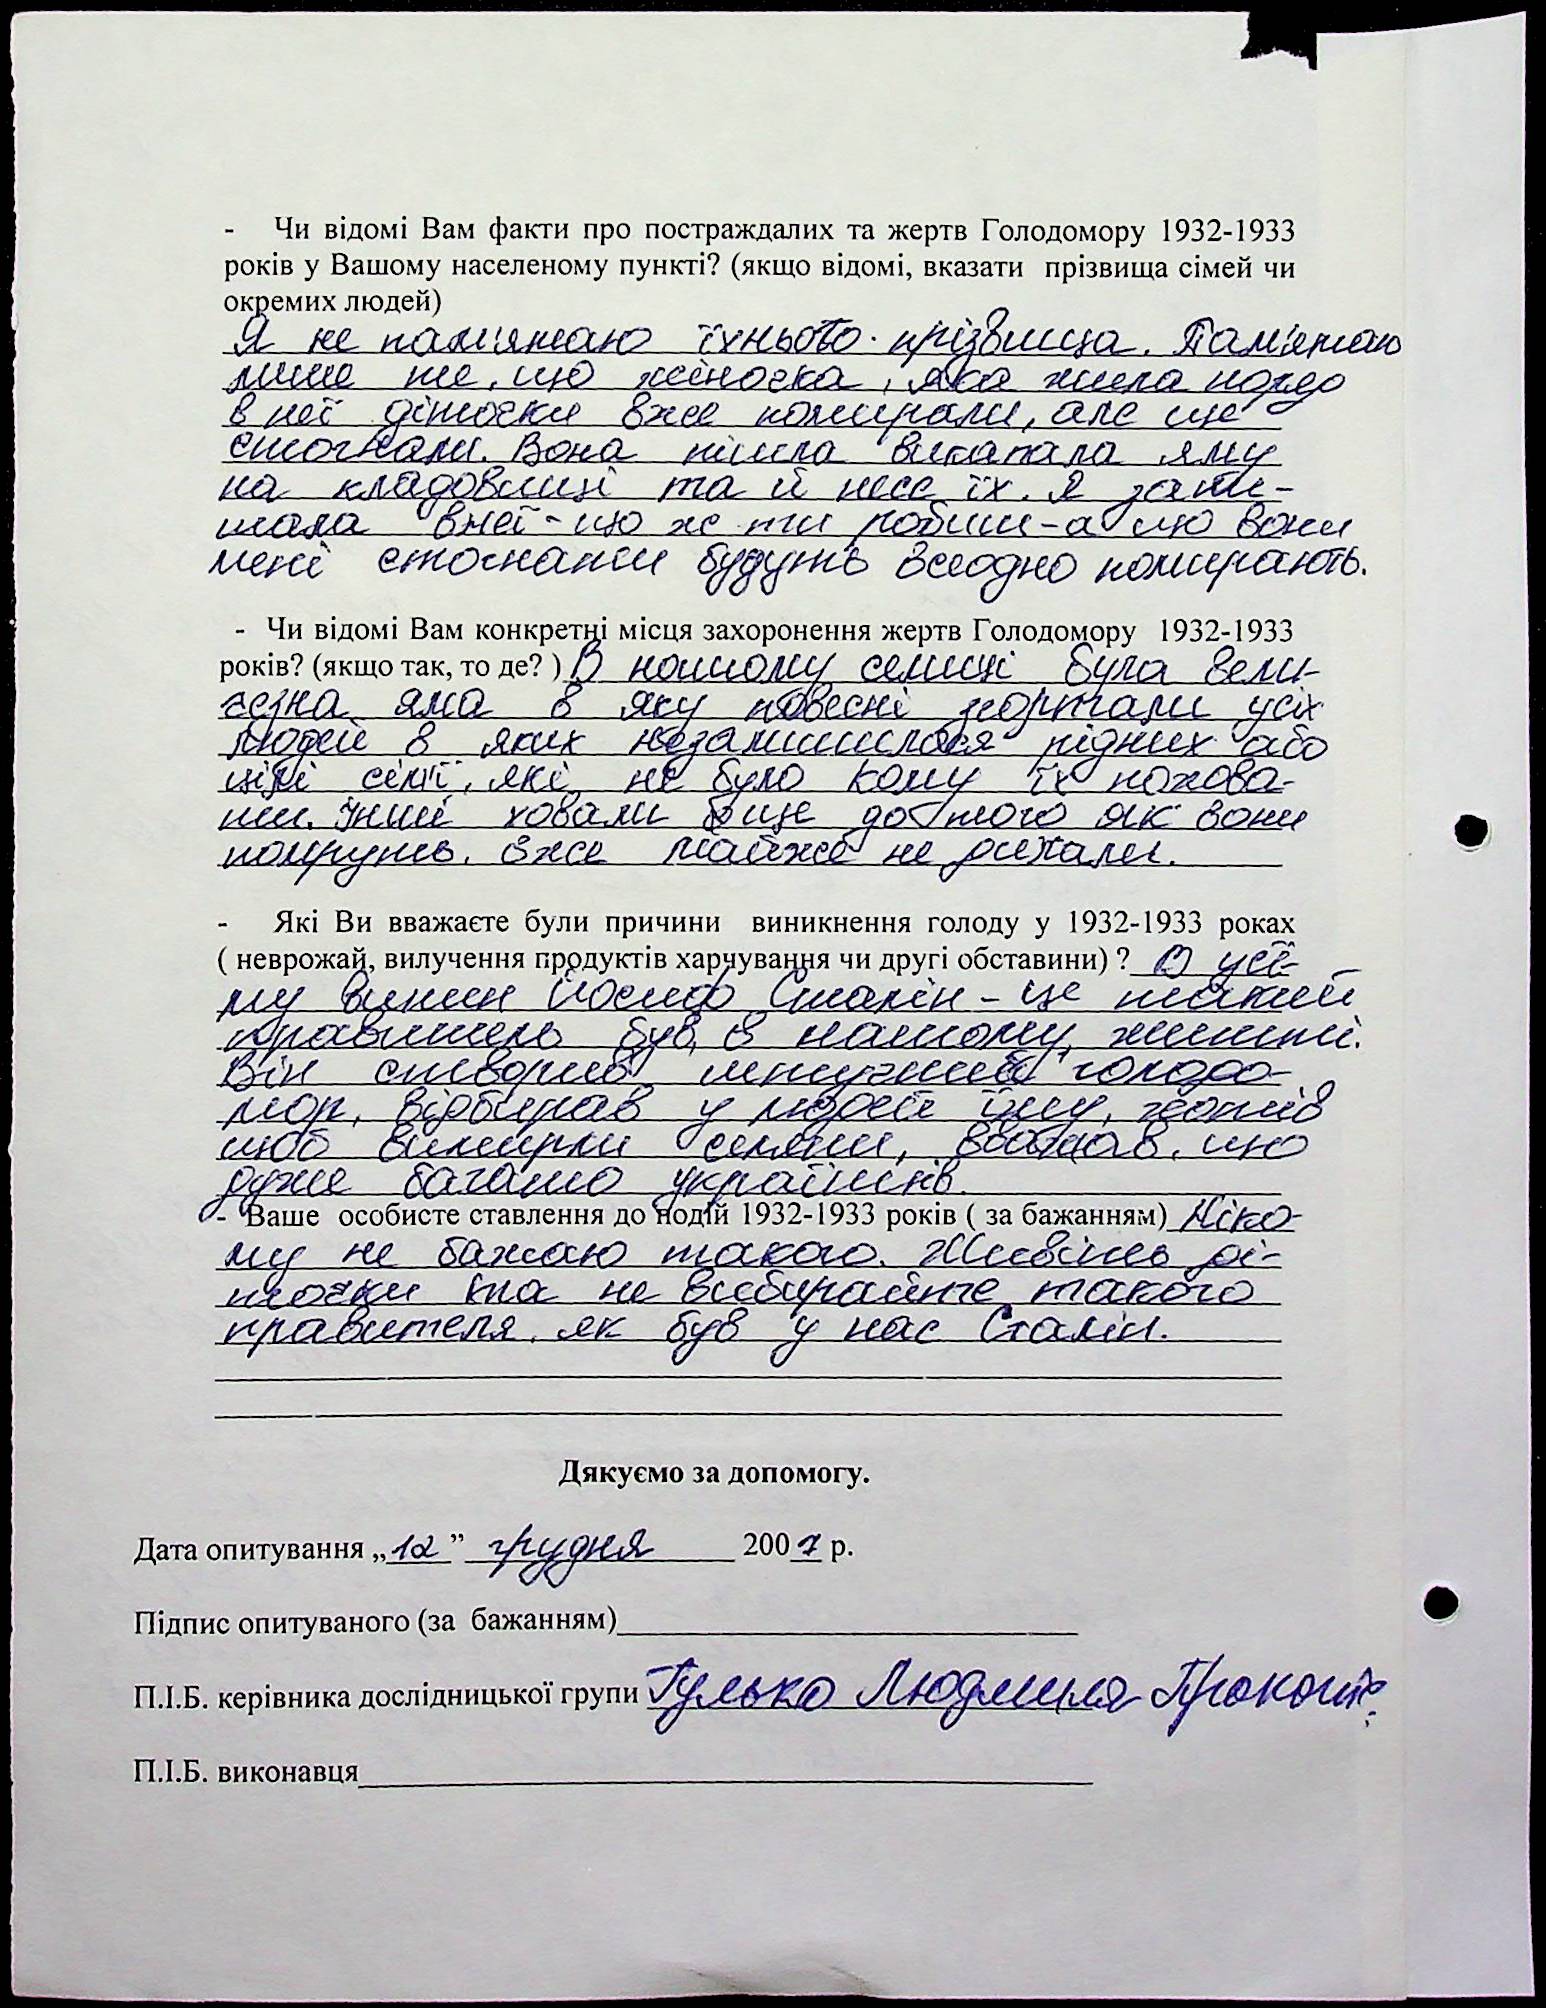 - Чи відомі Вам факти про постраждалих та жертв Голодомору 1932-1933
років у Вашому населеному пункті? (якщо відомі, вказати прізвища сімей чи
окремих людей)
Я не пам'ятаю їхнього прізвища. Пам'ятаю
лише те, що жіночка, яка жила поряд
в неї діточки вже помирали, але ще
стогнали. Вона пішла викапала яму
на кладовищі та й несе їх. Я запи-
тала внеї - що ж ти робиш - а що вони
мені стогнати будуть всеодно помирають.
- Чи відомі Вам конкретні місця захоронення жертв Голодомору 1932-1933
років? (якщо так, то де? ) В нашому селищі була вели-
чезна яма в яку повесні згортали усіх
людей в яких незалишилося рідних або
цілі сім'ї, які не було кому їх похова-
ти. Інші ховали ще до того як вони
помруть. вже майже не дихали.
- Які Ви вважаєте були причини виникнення голоду у 1932-1933 роках
( неврожай, вилучення продуктів харчування чи другі обставини) ? О усь-
му винен Йосиф Сталін - це такий
правитель був в нашому житті.
Він створив штучний голодо-
мор, відбирав у людей їжу, хотів
щоб вимирли селяни, вважав, що
дуже багато українців.
- Ваше особисте ставлення до подій 1932-1933 років ( за бажанням) Ніко-
му не бажаю такого. Живіть ді-
точки та не вибирайте такого
правителя, як був у нас Сталін.
Дякуємо за допомогу.
Дата опитування „12” грудня 2007 р.
Підпис опитуваного (за бажанням)
П.І.Б. керівника дослідницької групи Гулько Людмила
П.І.Б. виконавця